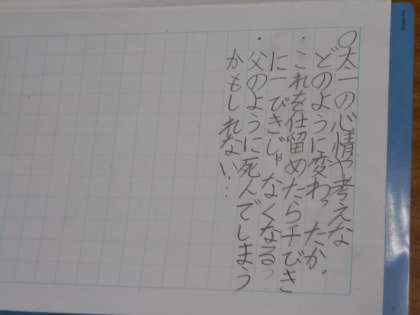 ○太一の心情や考えな
どのように変わったか。
・これを仕留めたら千びき
に一ぴきじゃなくなるっ
・父のように死んでしまう
かもしれない…